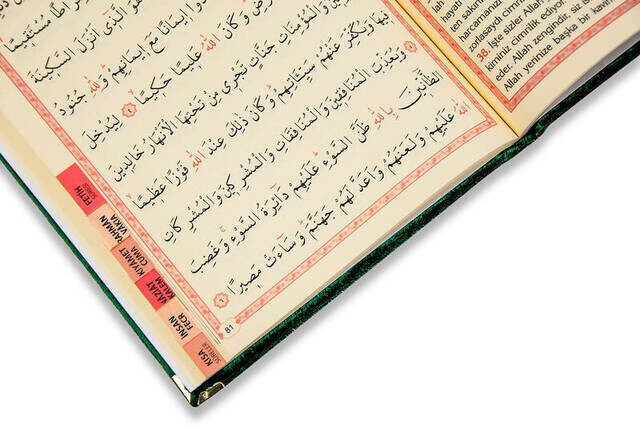 مُسْتَقِيمًا
الَّذِى اَنْزَلَ السَّكِينَةَ
اِيمَانًا مَعَ اِيمَانِهِمْ وَلِلّٰهِ جُنُودُ
وَكَانَ اللّٰهُ عَلِيمًا حَكِيمًا ٤ لِيُدْخِلَ
وَالْمُؤْمِنَاتِ جَنَّاتٍ تَجْرِى مِنْ تَحْتِهَا الْاَنْهَارُ خَالِدِينَ
فِيهَا وَيُكَفِّرَ عَنْهُمْ سَيِّـَٔاتِهِمْ وَكَانَ ذٰلِكَ عِنْدَ اللّٰهِ فَوْزًا عَظِيمًا
٥ وَيُعَذِّبَ الْمُنَافِقِينَ وَالْمُنَافِقَاتِ وَالْمُشْرِكِينَ وَالْمُشْرِكَاتِ
الظَّانِّينَ بِاللّٰهِ ظَنَّ السَّوْءِ عَلَيْهِمْ دَائِرَةُ السَّوْءِ وَغَضِبَ
اللّٰهُ عَلَيْهِمْ وَلَعَنَهُمْ وَاَعَدَّ لَهُمْ جَهَنَّمَ وَسَاءَتْ مَصِيرًا ٦
81
FETİH SÛRESİ
RAHMAN VAKIA
KIYAMET CUMA
NAZİAT KALEM
İNSAN FECR
KISA SÛRELER
hayat
ten sakın
harcamanızı
zorlasaydı cimri
38. İşte sizler Allah
kiminiz cimrilik ediyor.
eder. Allah zengindir, siz
Allah yerinize başka bir kavim